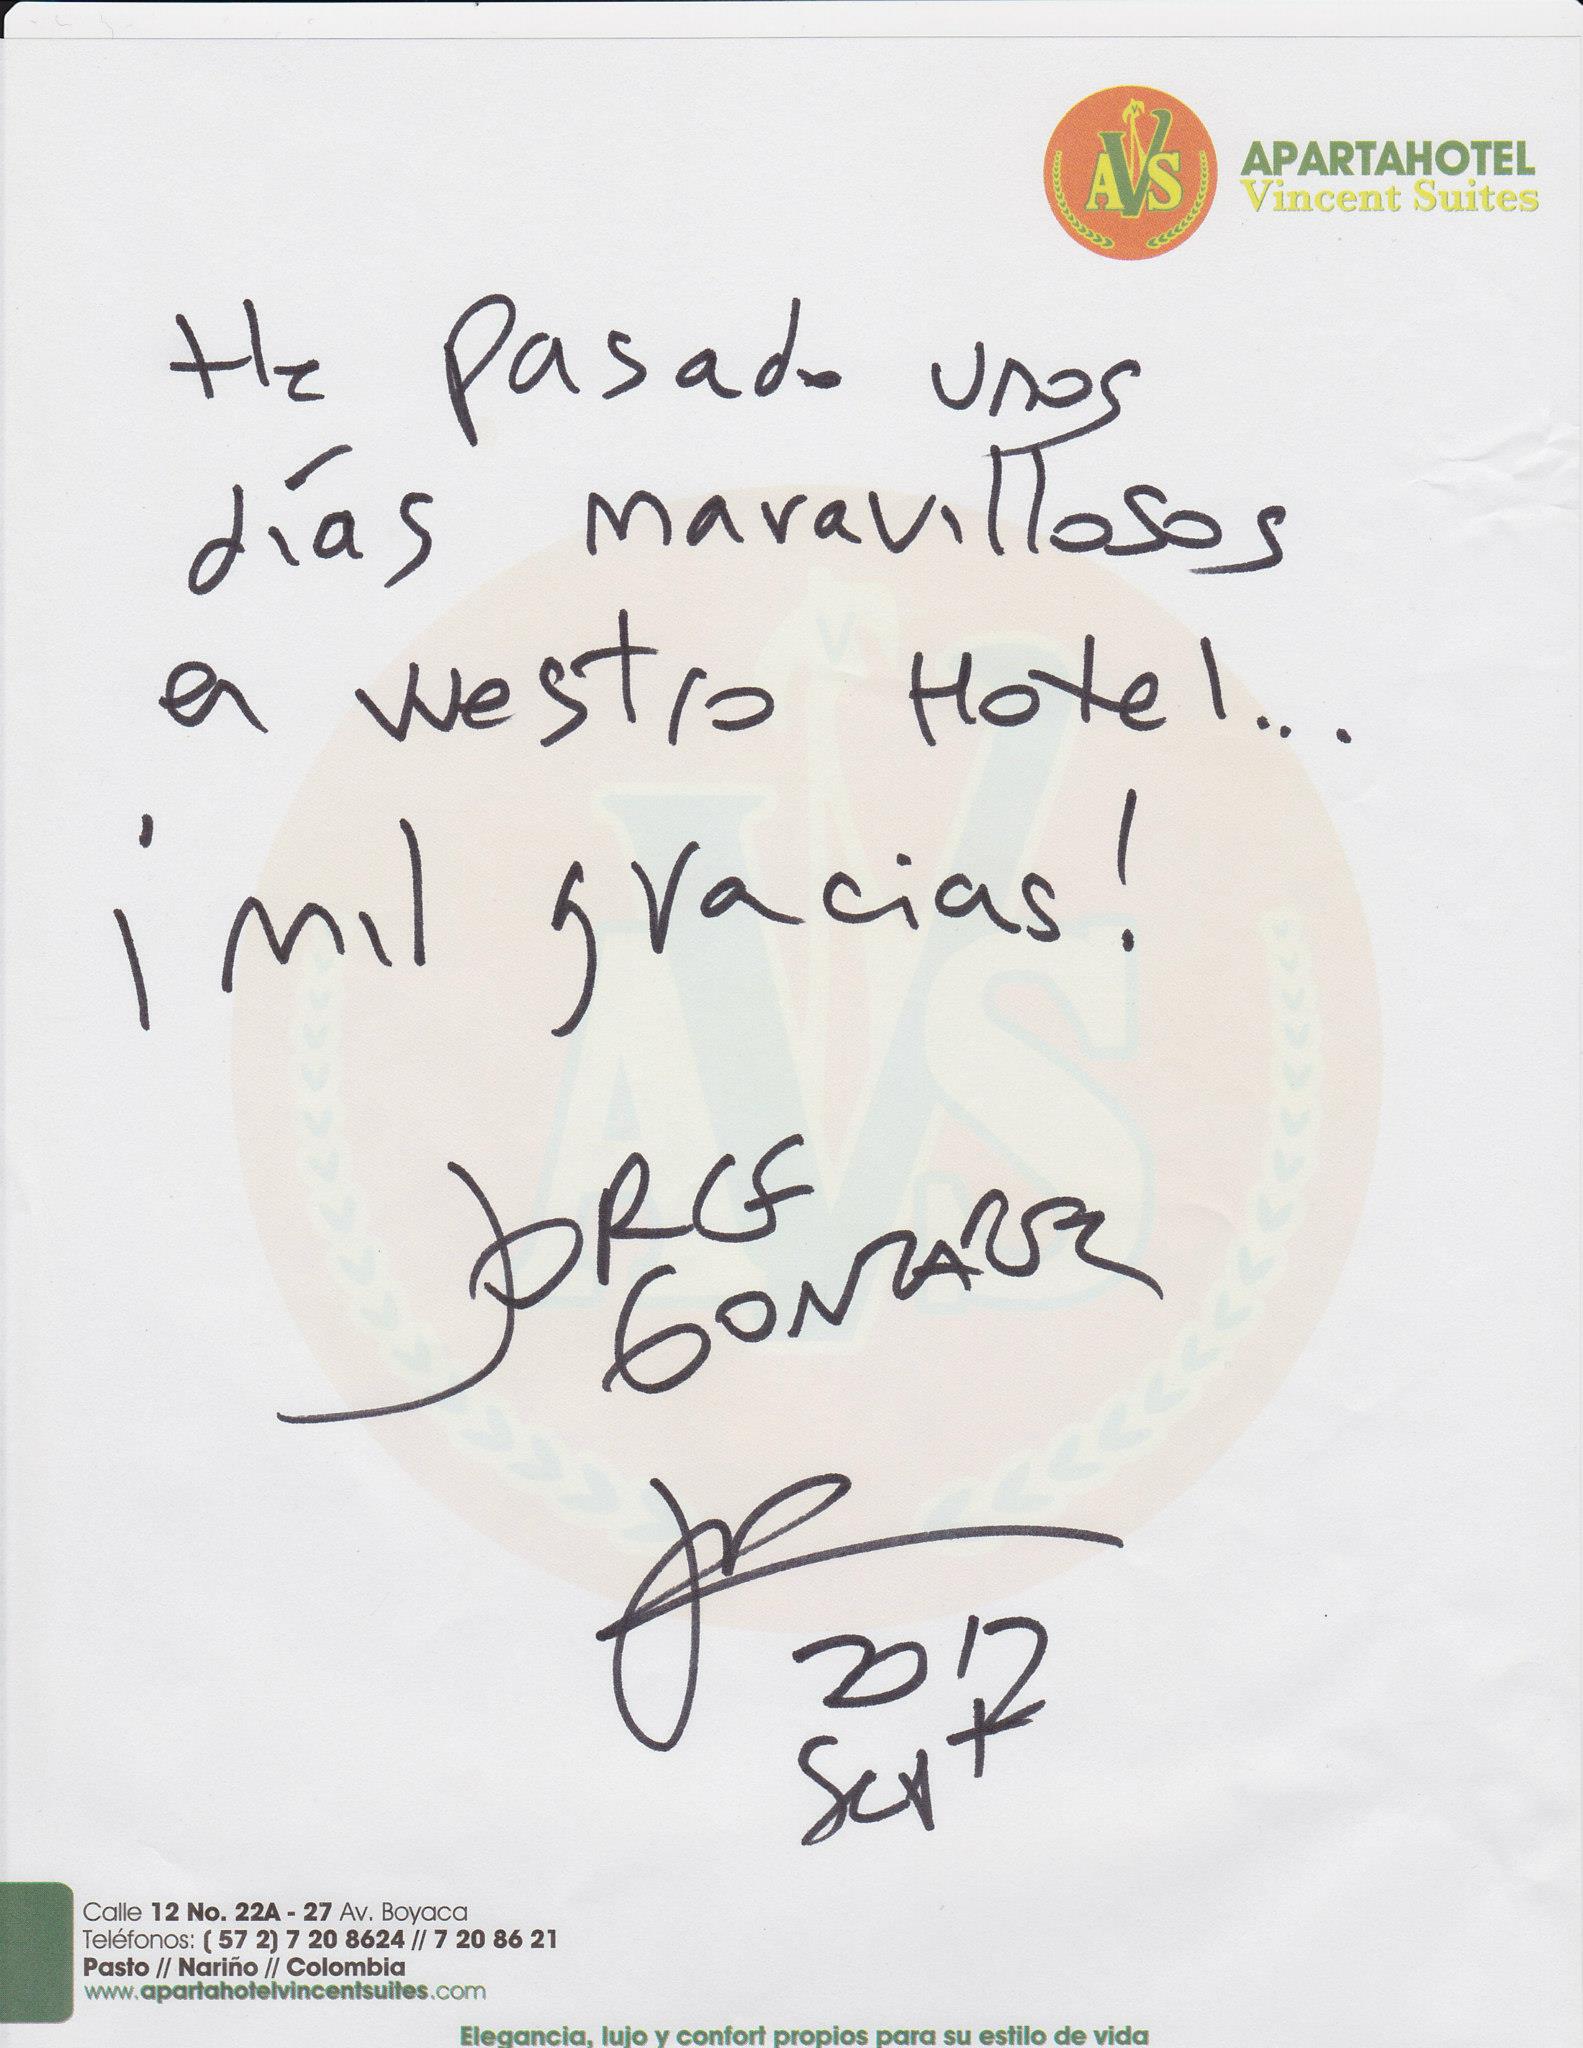 AVS
APARTAHOTEL
Vincent Suites
He pasado unos
días maravillosos
en vuestro Hotel...
¡mil gracias!
JORGE
GONZALEZ
2012
Sept
Calle 12 No. 22A - 27 Av. Boyaca
Teléfonos: ( 57 2) 7 20 8624 // 7 20 86 21
Pasto // Nariño // Colombia
www.apartahotelvincentsuites.com
Elegancia, lujo y confort propios para su estilo de vida